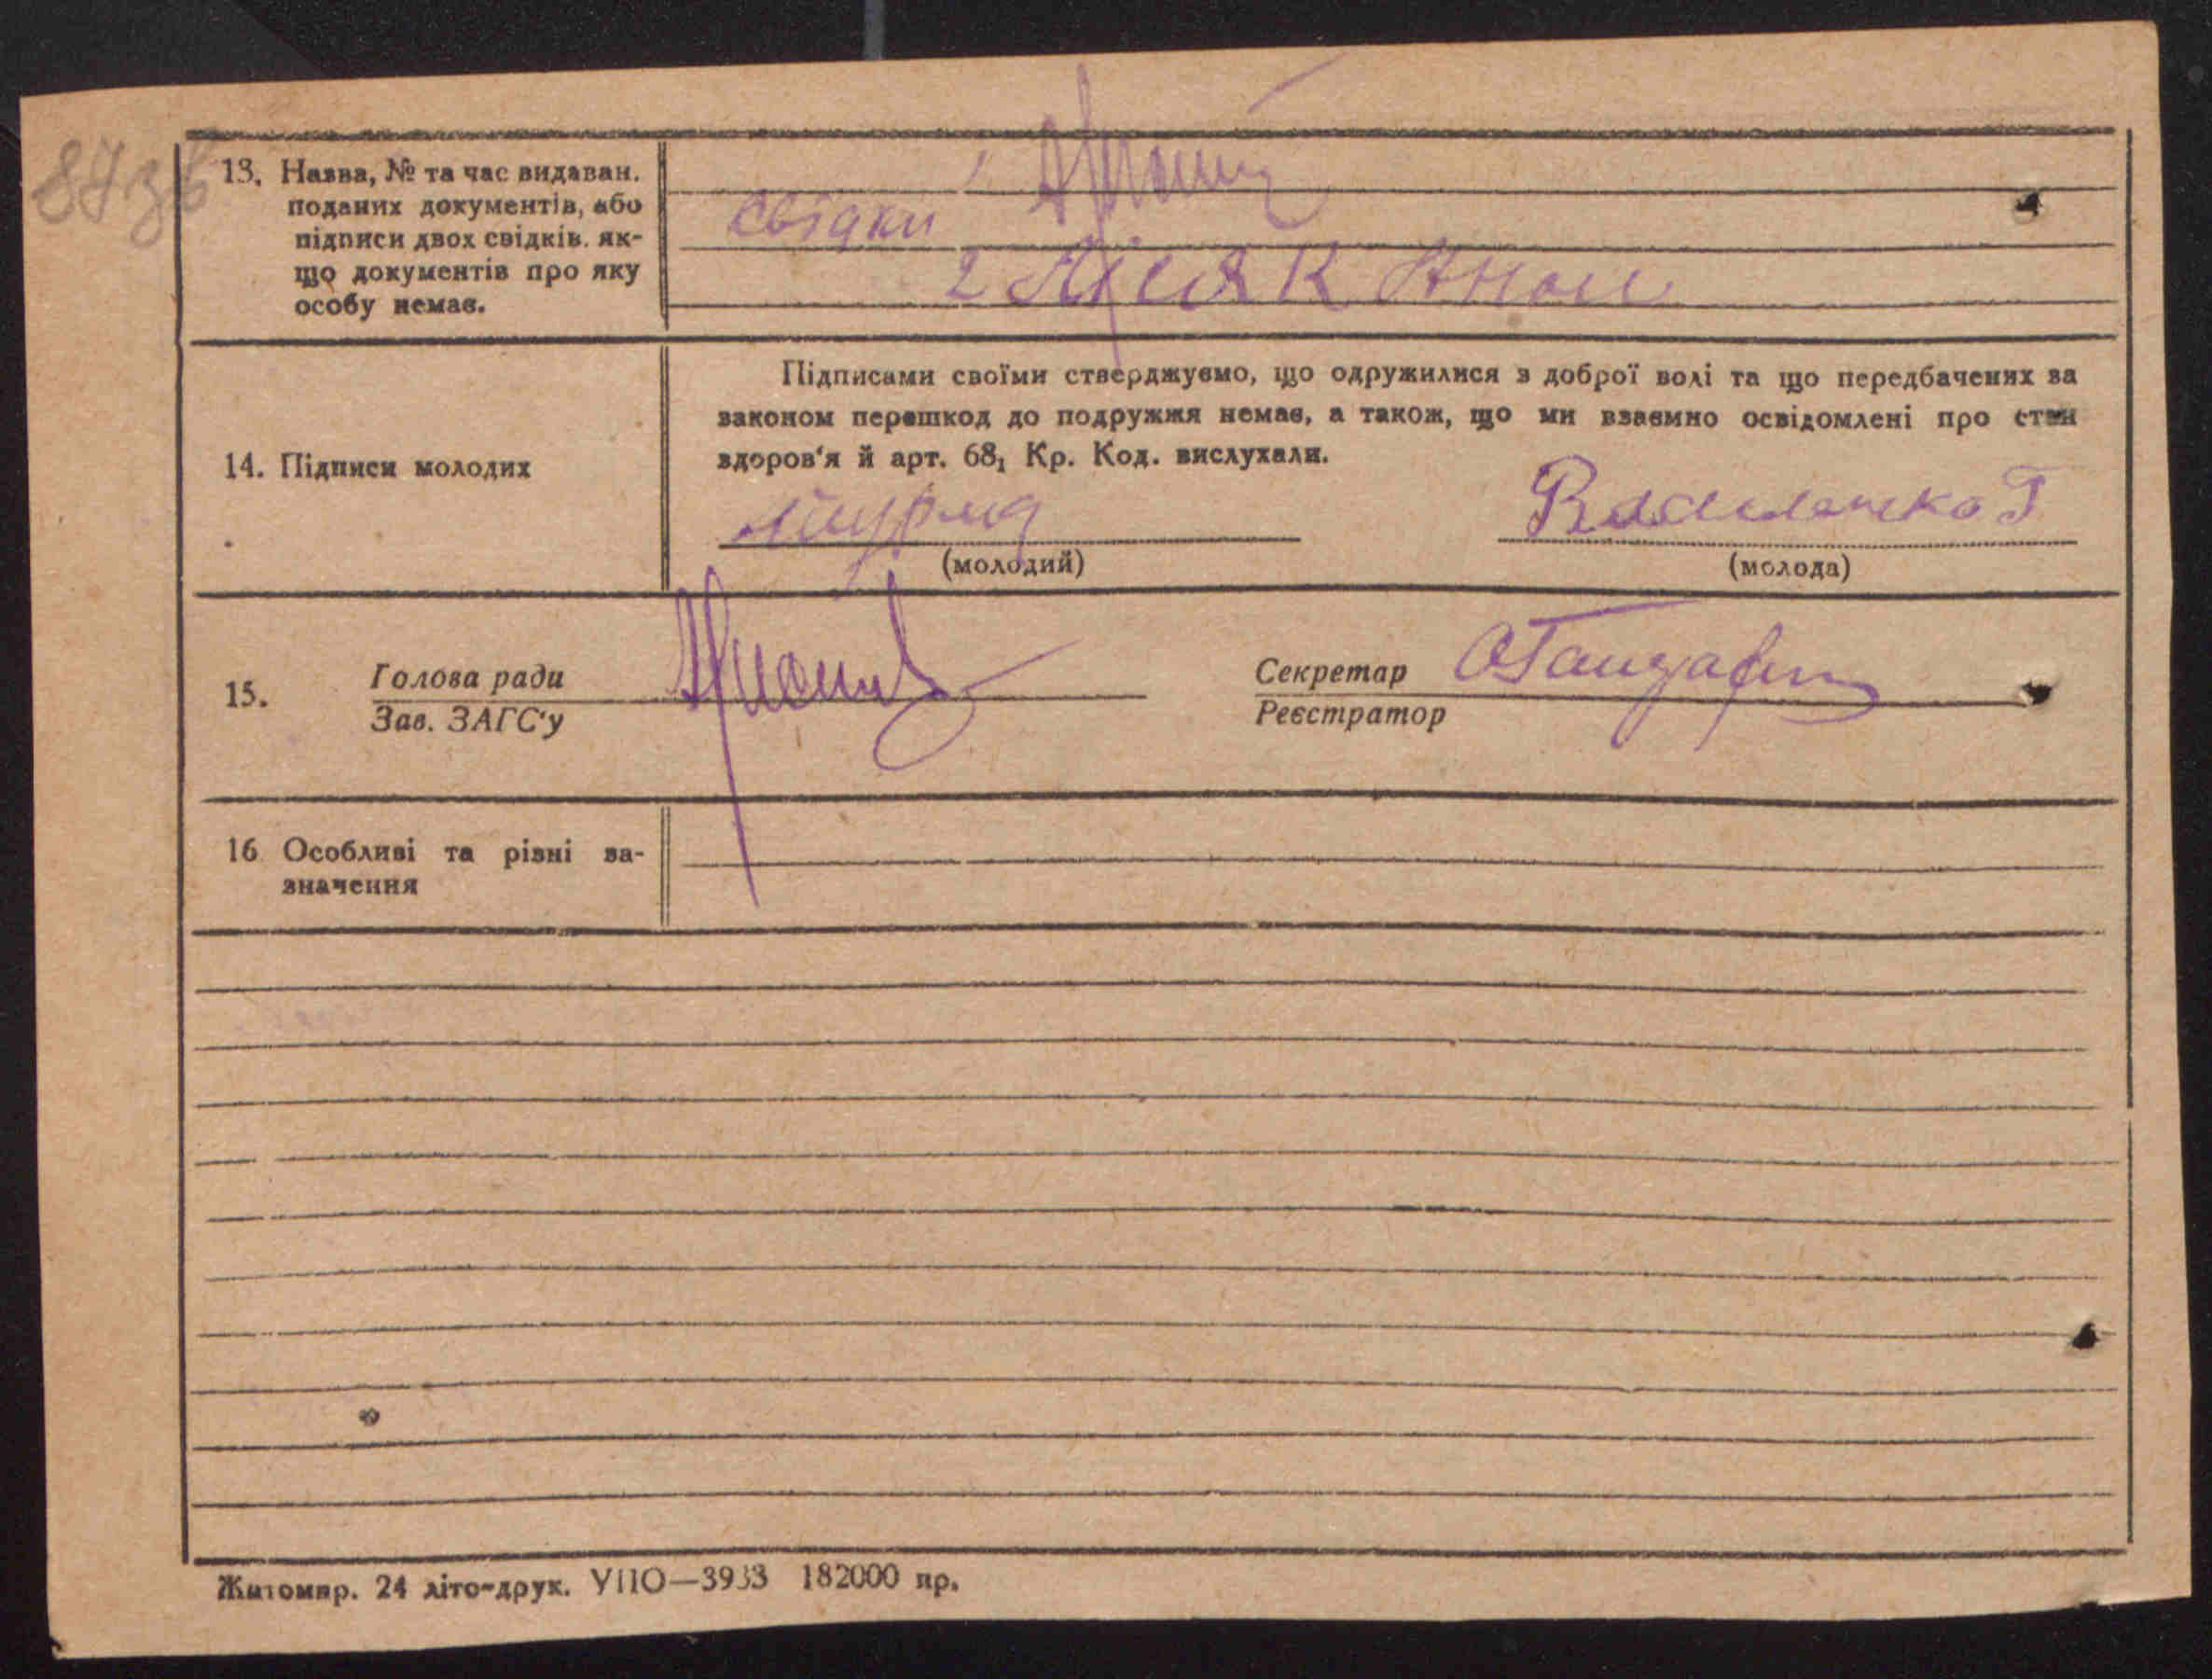 87зв
13. Назва, № та час видаван.
поданих документів, або
підписи двох свідків. як-
що документів про яку
особу немає.
1
свідки
2
Підписами своїми стверджуємо, що одружилися з доброї волі та що передбачених за
законом перешкод до подружжя немає, а також, що ми взаємно освідомлені про стан
здоров'я й арт. 68₁ Кр. Код. вислухали.
14. Підписи молодих
(молодий) (молода)
15. Голова ради Секретар
Зав. ЗАГС'у Реєстратор
16 Особливі та різні за-
значення
Житомир. 24 літо-друк. УПО—3933 182000 пр.